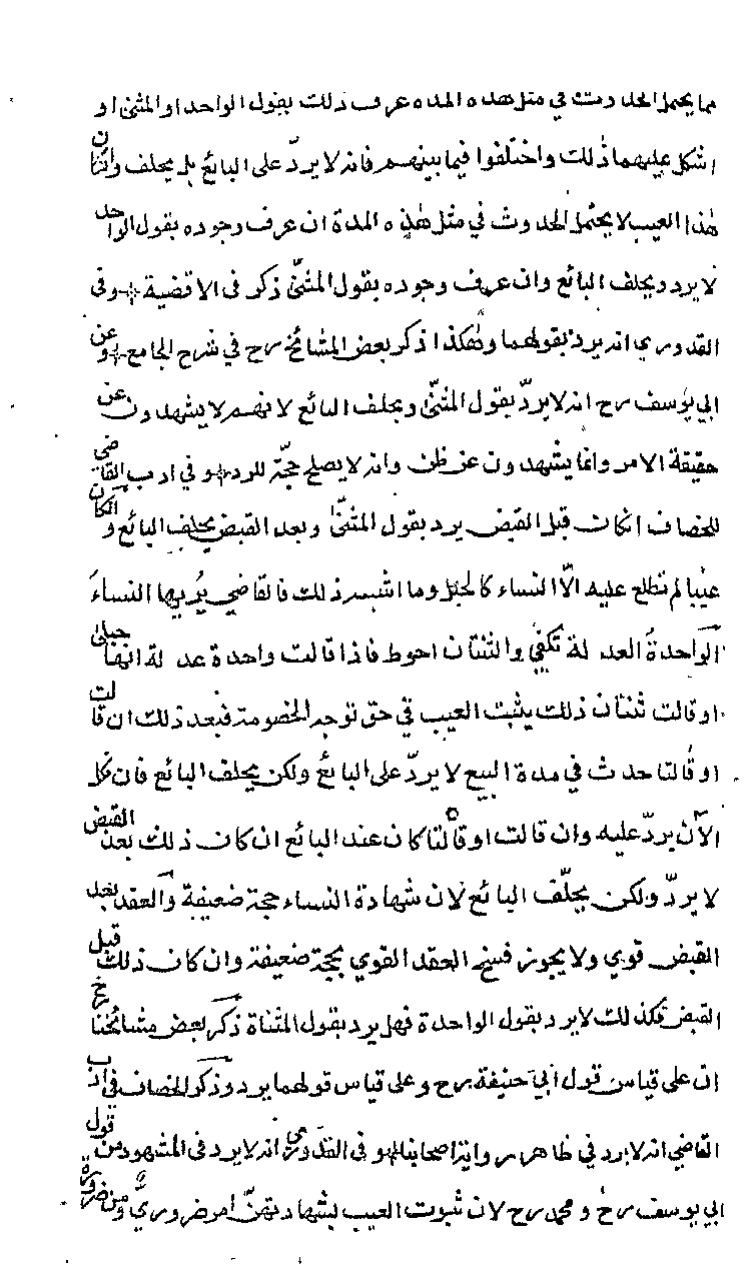 مما يحتمل الحدوث في مثل هذه المدة عرف ذلك بقول الواحد او المثنى او
اشكل عليهما ذلك واختلفوا فيما بينهم فانه لا يردّ على البائع بل يحلف وان كان
هٰذا العيب لا يحتمل الحدوث في مثل هٰذه المدة ان عرف وجوده بقول الواحد
لا يرد ويحلف البائع وان عرف وجوده بقول المثنّى ذكر في الاقضية وفي
القدوري انه يرد بقولهما وهٰكذا ذكر بعض المشائخ رح في شرح الجامع وعن
ابي يوسف رح انه لا يردّ بقول المثنّى ويحلف البائع لانهم لا يشهدون عن
حقيقة الامر وانما يشهدون عن ظن وانه لا يصلح حجّة للرد وفي ادب القاضي
للخصاف انكان قبل القبض يرد بقول المثنّى وبعد القبض يحلف البائع وانكان
عيبا لم تطلع عليه الّا النساء كالحبل وما اشبه ذلك فالقاضي يُريها النساءَ
الواحدةُ العدلة تكفي والثنتان احوط فاذا قالت واحدة عدلة انها حبلى
او قالت ثنتان ذلك يثبت العيب في حق توجه الخصومة فبعد ذلك ان قالت
او قالتا حدث في مدة البيع لا يردّ على البائع ولكن يحلف البائع فان نكل
الآن يردّ عليه وان قالت او قالتا كان عند البائع ان كان ذلك بعد القبض
لا يردّ ولكن يحلّف البائع لان شهادة النساء حجة ضعيفة والعقد بعد
القبض قوي ولا يجوز فسخ العقد القوي بحجة ضعيفة وان كان ذلك قبل
القبض فكذلك لا يرد بقول الواحدة فهل يرد بقول المثناة ذكر بعض مشائخنا رح
ان على قياس قول ابي حنيفة رح وعلى قياس قولهما يرد وذكر الخصاف في ادب
القاضي انه لا يرد في ظاهر رواية اصحابنا وفي القدوري انه لا يرد في المشهور من قول
ابي يوسف رح و محمد رح لان ثبوت العيب بشهادتهنّ امر ضروريٌّ ومن ضرورة